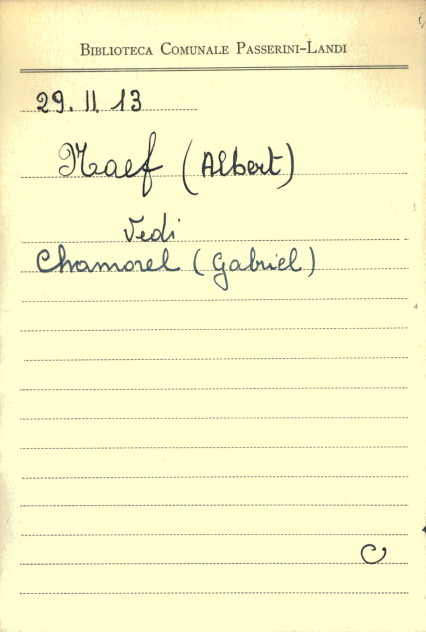 BIBLIOTECA COMUNALE PASSERINI-LANDI
29. II. 13
Naef (Albert)
Vedi
Chamorel (Gabriel)
C